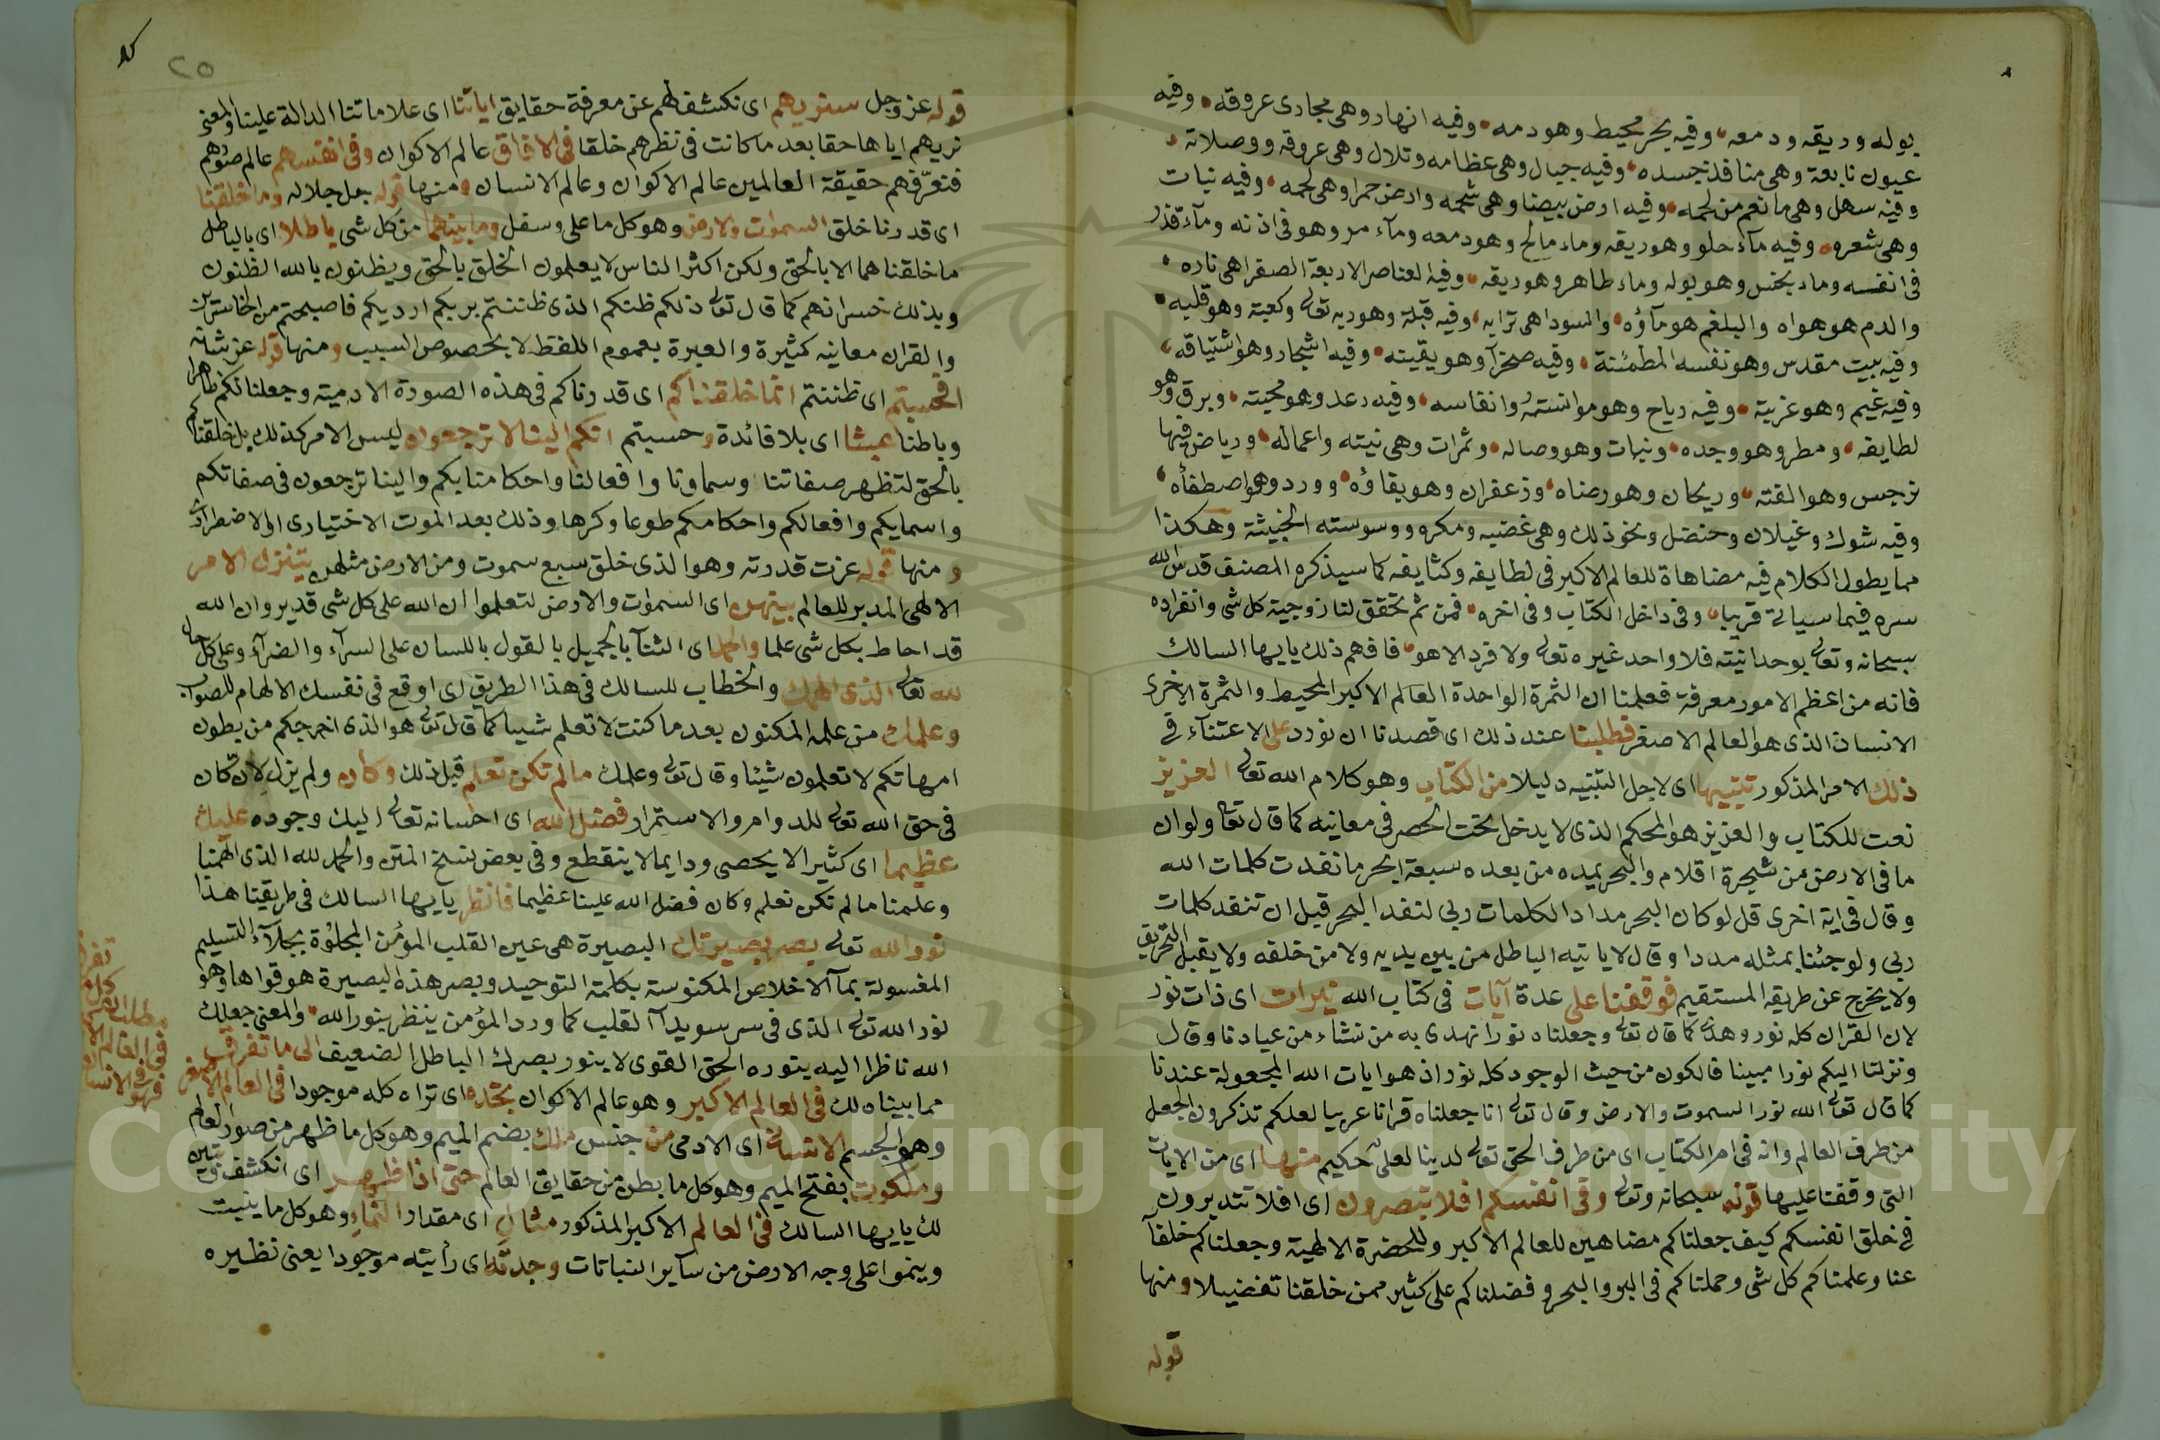 بوله وريقه ودمعه وفيه بحر محيط وهو دمه وفيه انهار وهى مجارى عروقه وفيه
عيون نابعة وهى منافذ جسده وفيه جبال وهى عظامه وتلال وهى عروقه ووصلاته
وفيه سهل وهى ما نعم من لحمه وفيه ارض بيضا وهى شحمه وارض حمرا وهى لحمه وفيه نبات
وهى شعره وفيه مآء حلو وهو ريقه وماء مالح وهو دمعه ومآء مر وهو فى اذنه ومآء قذر
فى انفسه وماء نجس وهو بوله وماء طاهر وهو ريقه وفيه العناصر الاربعة الصفرا هى ناره
والدم هو هواه والبلغم هو مآؤه والسودا هى ترابه وفيه قبلة وهو ربه تعالى وكعبة وهو قلبه
وفيه بيت مقدس وهو نفسه المطمئنة وفيه صخرآ وهو يقينه وفيه اشجار وهو اشتياقه
وفيه غيم وهو عزيته وفيه رياح وهو موانسته وانفاسه وفيه رعد وهو محبته وبرق وهو
لطايفه ومطر وهو وجده ونبات وهو وصاله وثمرات وهى نيته واعماله ورياض فيها
نرجس وهو الفته وريحان وهو رضاه وزعفران وهو بقاؤه وورد وهو اصطفآه
وفيه شوك وغيلان وحنضل ونحو ذلك وهى غضبه ومكره ووسوسته الخبيثة وهكذا
مما يطول الكلام فيه مضاهاة للعالم الاكبر فى لطايفه وكثايفه كما سيذكره المصنف قدس الله
سره فيما سياتى قريبا وفى داخل الكتاب وفى اخره فمن ثم تحقق لنا زوجية كل شى وانفراده
سبحانه وتعالى بوحدانيته فلا واحد غيره تعالى ولا فرد الا هو فافهم ذلك يايها السالك
فانه من اعظم الامور معرفة فعلمنا ان الثمرة الواحدة العالم الاكبر المحيط والثمرة الاخرى
الانسان الذى هو العالم الاصغر فطلبنا عند ذلك اى قصدنا ان نورد على الاعتنآء فى
ذلك الامر المذكور تنبيها اى لاجل التنبيه دليلا من الكتاب وهو كلام الله تعالى العزيز
نعت للكتاب والعزيز هو المحكم الذى لا يدخل تحت الحصر فى معانيه كما قال تعالى ولو ان
ما فى الارض من شجرة اقلام والبحر يمده من بعده سبعة ابحر ما نفدت كلمات الله
وقال فى اية اخرى قل لو كان البحر مدادا لكلمات ربى لنفد البحر قبل ان تنفد كلمات
ربى ولو جئنا بمثله مددا وقال لا ياتيه الباطل من بين يديه ولا من خلفه ولا يقبل التحريف
ولا يخرج عن طريقه المستقيم فوقفنا على عدة آيات فى كتاب الله نيرات اى ذات نور
لان القران كله نور وهدى كما قال تعالى وجعلناه نورا نهدى به من نشاء من عبادنا وقال
ونزلنا اليكم نورا مبينا فالكون من حيث الوجود كله نور اذ هو ايات الله المجعولة عندنا
كما قال تعالى الله نور السموت والارض وقال تعالى انا جعلناه قرانا عربيا لعلكم تذكرون الجعل
من طرف العالم وانه فى ام الكتاب اى من طرف الحق تعالى لدينا لعلىّ حكيم منها اى من الايات
التى وقفنا عليها قوله سبحانه وتعالى وفى انفسكم افلا تبصرون اى افلا تتدبرون
فى خلق انفسكم كيف جعلناكم مضاهين للعالم الاكبر وللحضرة الالهية وجعلناكم خلفآ
عنا وعلمناكم كل شى وحملناكم فى البر والبحر وفضلناكم على كثير ممن خلقنا تفضيلا ومنها
قوله
٢٥
قوله عز وجل سنريهم اى نكشف لهم عن معرفة حقايق اياتنا اى علاماتنا الدالة علينا والمعنى
نريهم اياها حقا بعد ما كانت فى نظرهم خلقا فى الافاق عالم الاكوان وفى انفسهم عالم صورهم
فنعرّفهم حقيقة العالمين عالم الاكوان وعالم الانسان ومنها قوله جل جلاله وما خلقنا
اى قدرنا خلق السموات والارض وهو كل ما على وسفل وما بينهما من كل شى باطلا اى بالباطل
ما خلقناهما الا بالحق ولكن اكثر الناس لا يعلمون الخلق بالحق ويظنون بالله الظنون
وبذلك خسرانهم كما قال تعالى ذلكم ظنكم الذى ظننتم بربكم ارديكم فاصبحتم من الخاسرين
والقران معانيه كثيرة والعبرة بعموم اللفظ لا بخصوص السبب ومنها قوله عز شانه
افحسبتم اى ظننتم انما خلقناكم اى قدرناكم فى هذه الصورة الادمية وجعلنا لكم ظاهرا
وباطنا عبثا اى بلا فائدة وحسبتم انكم الينا لا ترجعون ليس الامر كذلك بل خلقناكم
بالحق لتظهر صفاتنا وسماونا وافعالنا واحكامنا بكم والينا ترجعون فى صفاتكم
واسمايكم وافعالكم واحكامكم طوعا وكرها وذلك بعد الموت الاختيارى او الاضطرارى
ومنها قوله عزت قدرته وهو الذى خلق سبع سموت ومن الارض مثلهن يتنزل الامر
الالهى المدبر للعالم بينهن اى السموات والارض لتعلموا ان الله على كل شى قدير وان الله
قد احاط بكل شى علما والحمد اى الثنآ بالجميل بالقول باللسان على السرآء والضرآء وعلى كل حال
لله تعالى الذى الهمك والخطاب للسالك فى هذا الطريق اى اوقع فى نفسك الالهام للصواب
وعلمك من علمه المكنون بعد ما كنت لا تعلم شيبا كما قال تعالى هو الذى اخرجكم من بطون
امهاتكم لا تعلمون شيئا وقال تعالى وعلمك ما لم تكن تعلم قبل ذلك وكان ولم يزل لان كان
فى حق الله تعالى للدوام والاستمرار فضل الله اى احسانه تعالى اليك وجوده عليك
عظيما اى كثيرا لا يحصى ودايما لا ينقطع وفى بعض نسخ المتن والحمد لله الذى الهمنا
وعلمنا ما لم نكن نعلم وكان فضل الله علينا عظيما فانظر يايها السالك فى طريقنا هذا
نور الله تعالى بصر بصيرتك البصيرة هى عين القلب المؤمن المجلوّة بجلآء التسليم
المغسولة بمآ الاخلاص المكنوسة بكلمة التوحيد وبصر هذه البصيرة هو قواها وهو
نور الله تعالى الذى فى سر سويدآ القلب كما ورد المؤمن ينظر بنور الله والمعنى جعلك
الله ناظرا اليه بنوره الحق القوى لا بنور بصرك الباطل الضعيف الى ما تفرق
مما بيناه لك فى العالم الاكبر وهو عالم الاكوان تجده اى تراه كله موجودا فى العالم الاصغر
وهو الجسم الانسانى اى الادمى من جنس ملك بضم الميم وهو كل ما ظهر من صور العالم
وملكوت بفتح الميم وهو كل ما بطن من حقايق العالم حتى اذا ظهر اى انكشف وتبين
لك يايها السالك فى العالم الاكبر المذكور مثال اى مقدار النماء وهو كل ما ينبت
وينموا على وجه الارض من سآير النباتات وجدته اى رأيته موجودا يعنى نظيره
فى العالم
فهو فى الانسان
Copyright © King Saud University
195